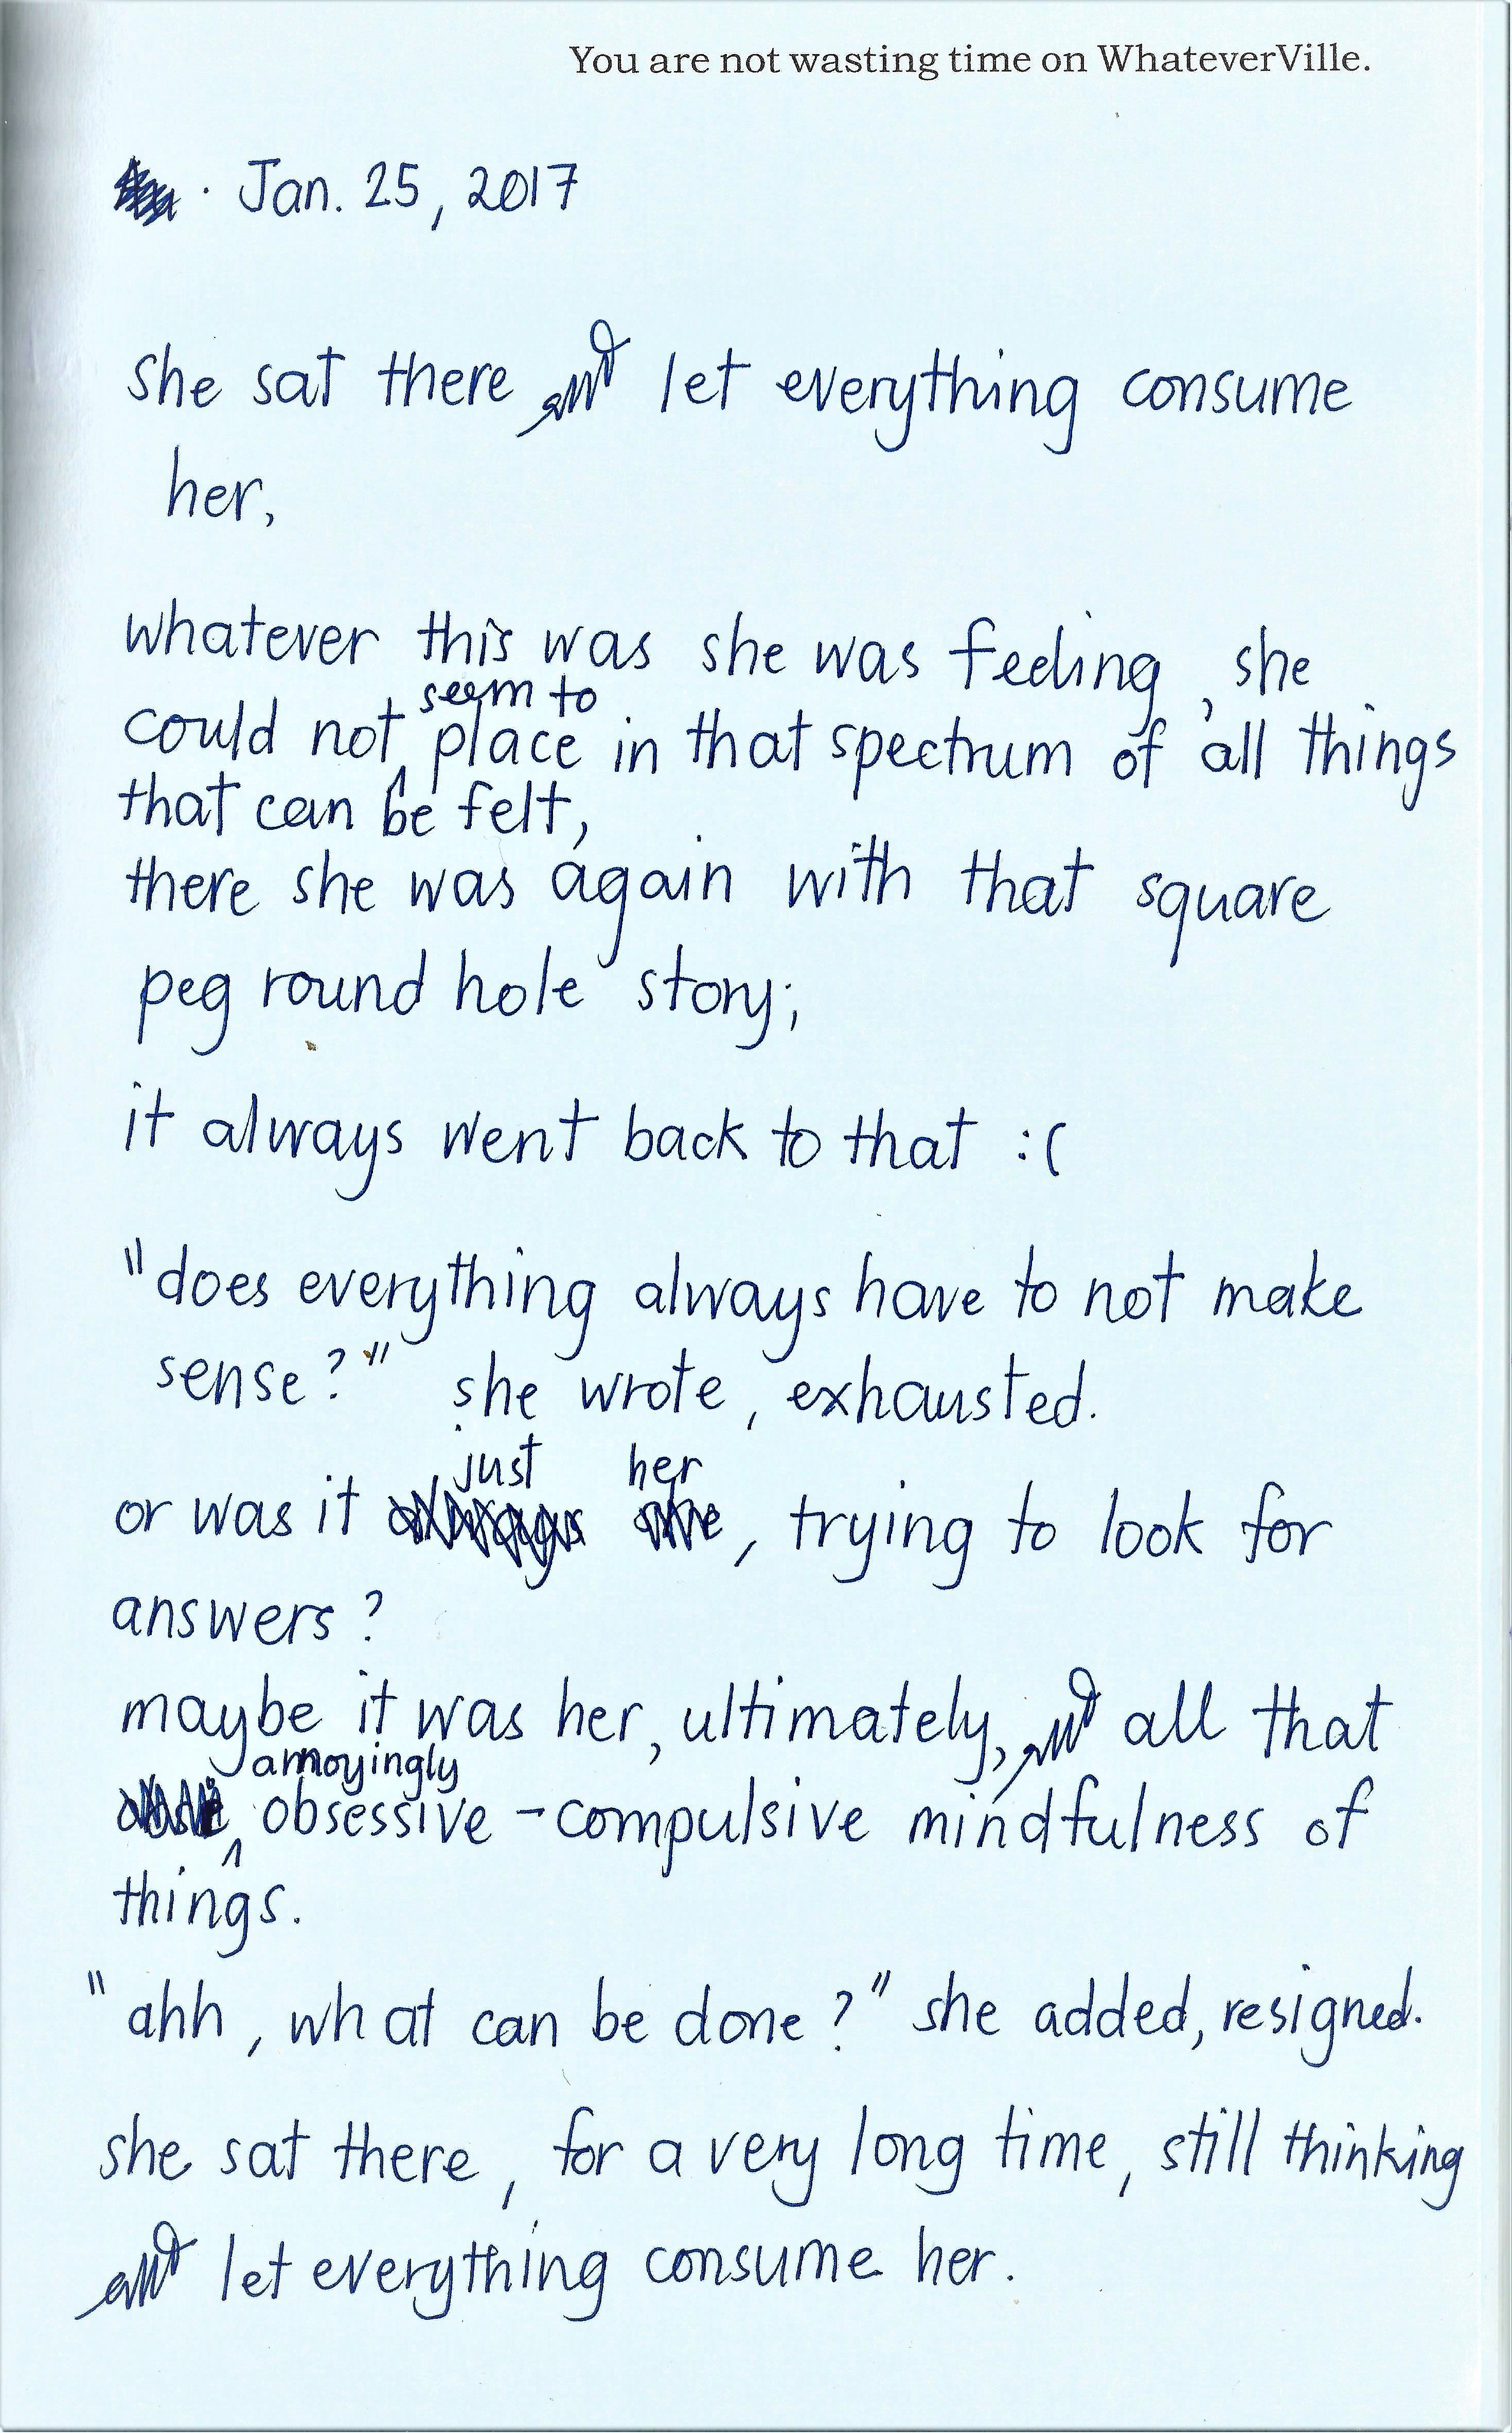 You are not wasting time on WhateverVille.
· Jan. 25, 2017
she sat there and let everything consume
her,
whatever this was she was feeling, she
seem to
could not place in that spectrum of all things
that can be felt,
there she was again with that square
peg round hole story;
it always went back to that :(
"does everything always have to not make
sense?" she wrote, exhausted.
just her
or was it always me, trying to look for
answers?
maybe it was her, ultimately, and all that
annoyingly
obsessive-compulsive mindfulness of
things.
"ahh, what can be done?" she added, resigned.
she sat there, for a very long time, still thinking
and let everything consume her.